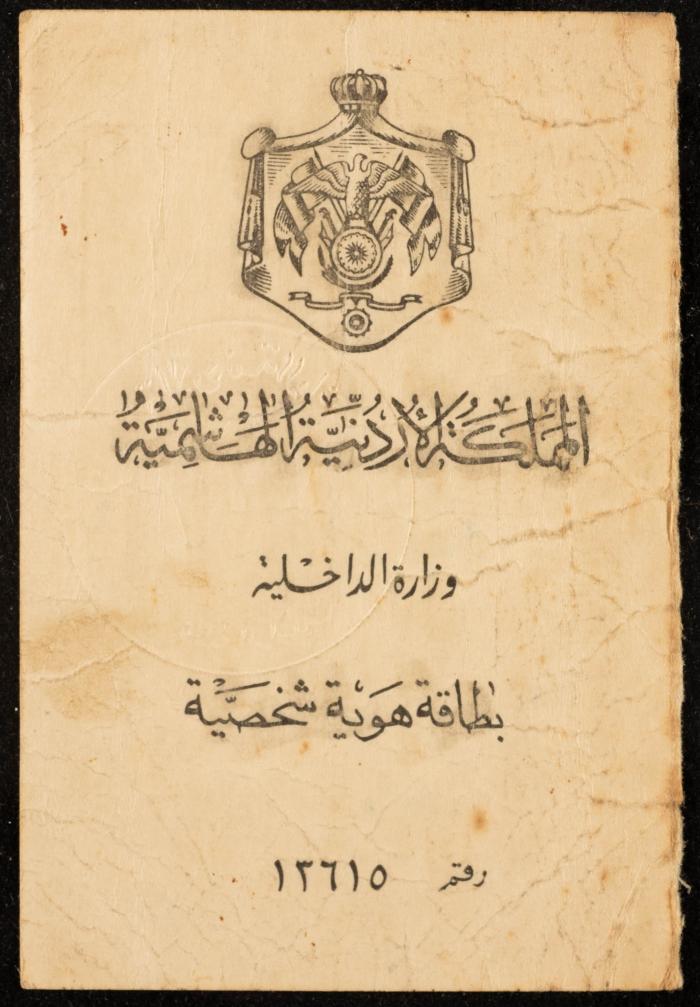 المملكة الأردنية الهاشمية
وزارة الداخلية
بطاقة هوية شخصية
رقم ١٣٦١٥